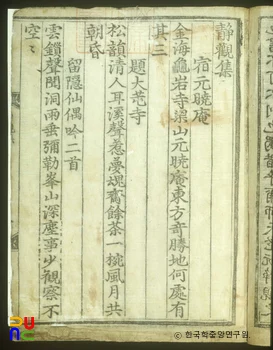 靜觀集
宿元曉庵
金海龜岩寺梁山元曉庵東方奇勝地何處有
其三
題大芚寺
松韻清人耳溪聲惹夢魂齋餘茶一椀風月共
朝昏
留隱仙偶吟二首
雲鎖聲聞洞雨垂彌勒峯山深塵事少觀察不
空〻
© 한국학중앙연구원